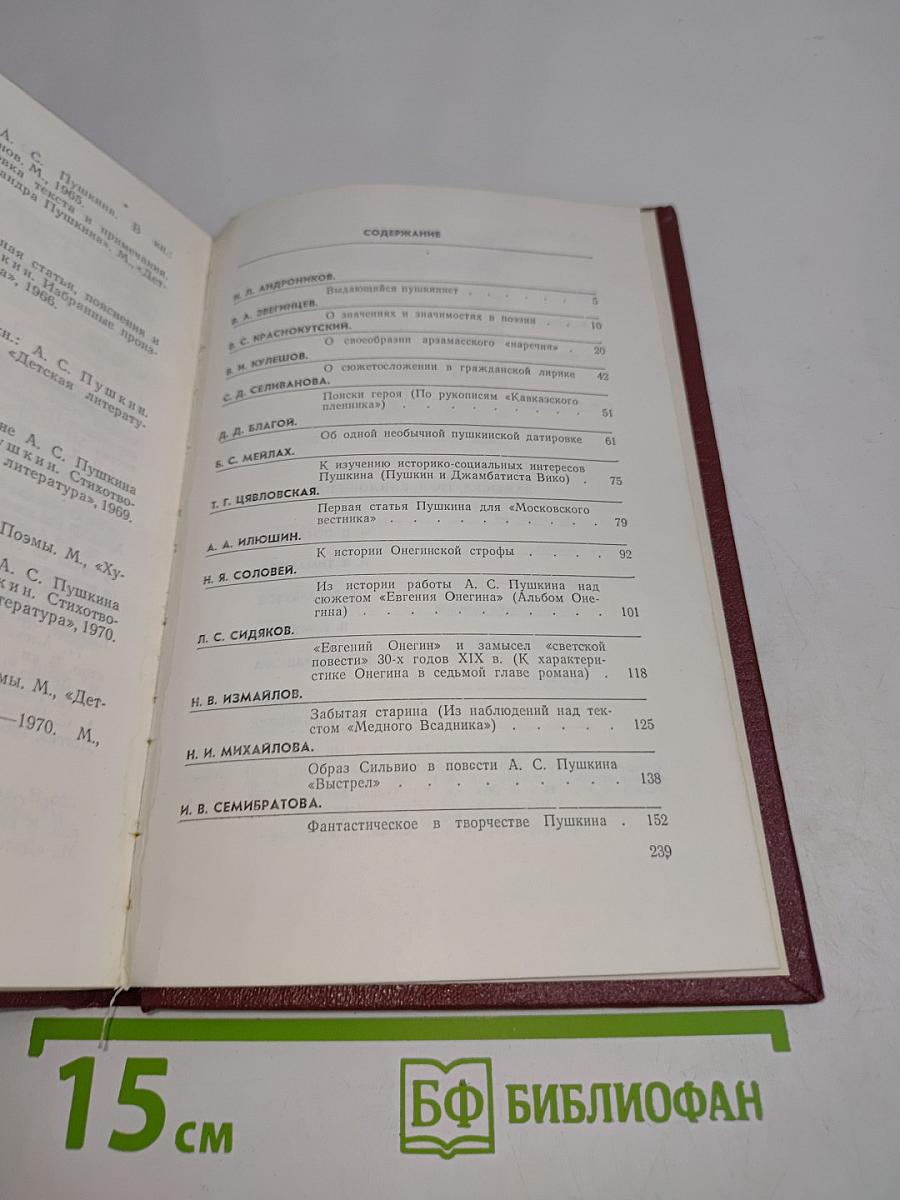 А. С. Пушкина. В кн.:
нов. М., 1965.
овка текста и примечания.
андра Пушкина». М., «Дет-
ная статья, пояснения и
кин. Избранные произ-
а», 1966.
н.: А. С. Пушкин.
«Детская литерату-
не А. С. Пушкина
ушкин. Стихотво-
литература», 1969.
Поэмы. М., «Ху-
А. С. Пушкина
кин. Стихотво-
тература», 1970.
мы. М., «Дет-
—1970. М.,
СОДЕРЖАНИЕ
И. Л. АНДРОНИКОВ.
Выдающийся пушкинист . . . . . . 5
В. А. ЗВЕГИНЦЕВ.
О значениях и значимостях в поэзии . . 10
В. С. КРАСНОКУТСКИЙ.
О своеобразии арзамасского «наречия» . 20
В. И. КУЛЕШОВ.
О сюжетосложении в гражданской лирике 42
С. Д. СЕЛИВАНОВА.
Поиски героя (По рукописям «Кавказского
пленника») . . . . . . . . . 51
Д. Д. БЛАГОЙ.
Об одной необычной пушкинской датировке 61
Б. С. МЕЙЛАХ.
К изучению историко-социальных интересов
Пушкина (Пушкин и Джамбатиста Вико) . 75
Т. Г. ЦЯВЛОВСКАЯ.
Первая статья Пушкина для «Московского
вестника» . . . . . . . . . . 79
А. А. ИЛЮШИН.
К истории Онегинской строфы . . . . 92
Н. Я. СОЛОВЕЙ.
Из истории работы А. С. Пушкина над
сюжетом «Евгения Онегина» (Альбом Оне-
гина) . . . . . . . . . . 101
Л. С. СИДЯКОВ.
«Евгений Онегин» и замысел «светской
повести» 30-х годов XIX в. (К характери-
стике Онегина в седьмой главе романа) . 118
Н. В. ИЗМАЙЛОВ.
Забытая старина (Из наблюдений над тек-
стом «Медного Всадника») . . . . . 125
Н. И. МИХАЙЛОВА.
Образ Сильвио в повести А. С. Пушкина
«Выстрел» . . . . . . . . . 138
И. В. СЕМИБРАТОВА.
Фантастическое в творчестве Пушкина . 152
239
15 см
БФ БИБЛИОФАН